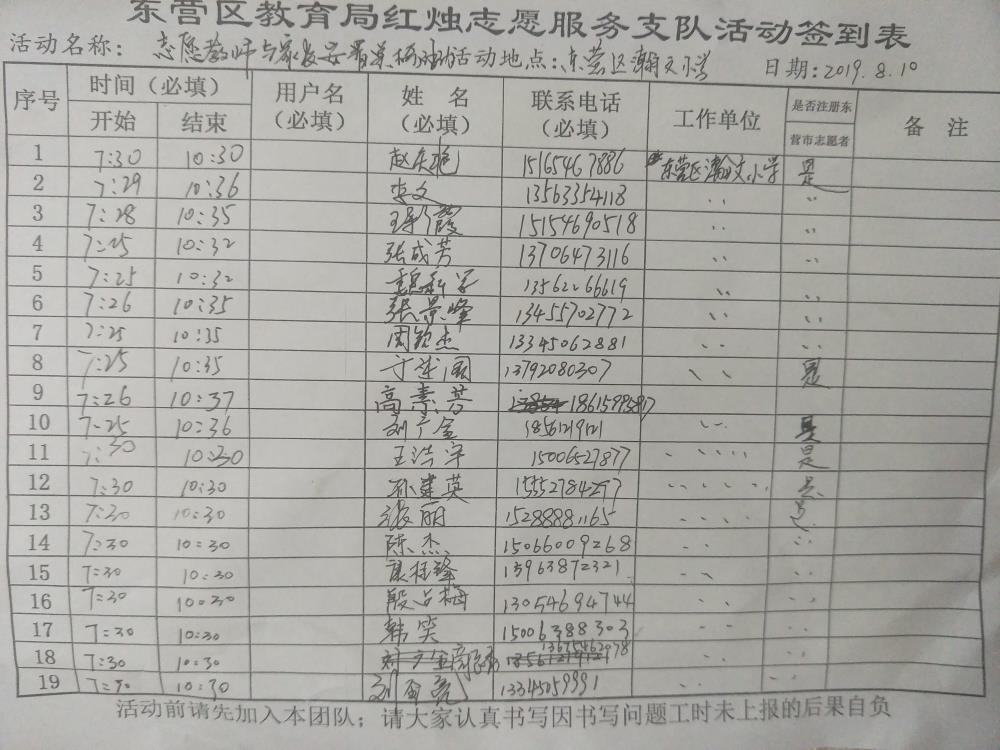 东营区教育局红烛志愿服务支队活动签到表
活动名称: 志愿教师与家长 活动地点:东营区瀚文小学 日期:2019.8.10
序号 时间(必填) 用户名(必填) 姓名(必填) 联系电话(必填) 工作单位 是否注册东营市志愿者 备注
开始 结束
1 7:30 10:30 15165467886 东营区瀚文小学 是
2 7:29 10:36 李文 13563354118 〃 〃
3 7:28 10:35 15154690518 〃 〃
4 7:25 10:32 张成芳 13706473116 〃 〃
5 7:25 10:32 13562266619 〃 〃
6 7:26 10:35 张景峰 13455702772 〃 〃
7 7:25 10:35 周钦杰 13345062881 〃 〃
8 7:25 10:35 13792080307 〃 是
9 7:26 10:37 高素芳
10 7:25 10:36 刘广金 〃 是
11 7:30 10:30 王洪宇 15006527877 〃 是
12 7:30 10:30 孙建英 15552784297 〃 是
13 7:30 10:30 张丽 15288881165 〃 是
14 7:30 10:30 陈杰 15066009268 〃 〃
15 7:30 10:30 13963872321 〃 〃
16 7:30 10:30 殷占梅 13054694744 〃 〃
17 7:30 10:30 韩笑 15006388303 〃 〃
18 7:30 10:30 13675462078 〃 〃
19 7:30 10:30 13345059991 〃 〃
活动前请先加入本团队;请大家认真书写因书写问题工时未上报的后果自负